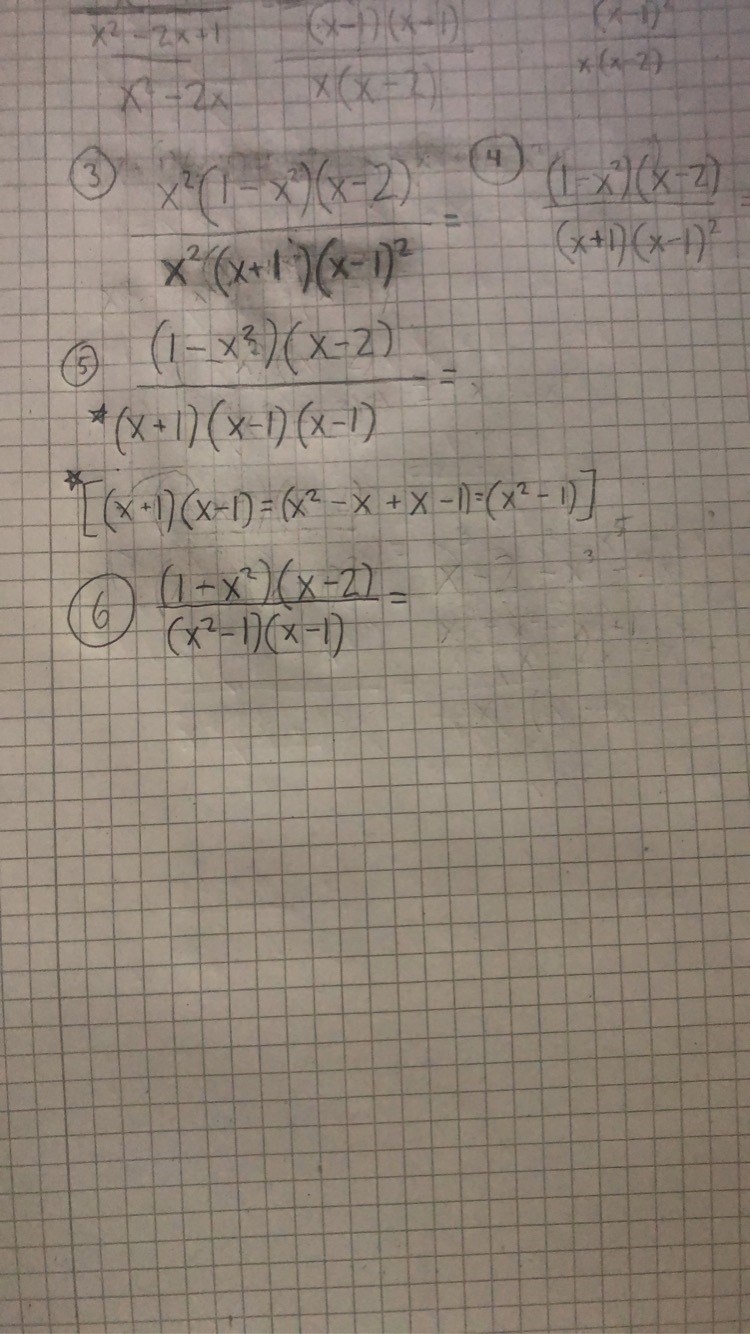 x² - 2x + 1 (x-1)(x-1) (x-1)²
x² - 2x x(x-2) x(x-2)
③ x²(1-x²)(x-2) ④ (1-x²)(x-2)
= =
x²(x+1)(x-1)² (x+1)(x-1)²
⑤ (1-x²)(x-2)
=
*(x+1)(x-1)(x-1)
*[(x+1)(x-1)=(x²-x+x-1)=(x²-1)]
⑥ (1-x²)(x-2) =
(x²-1)(x-1)